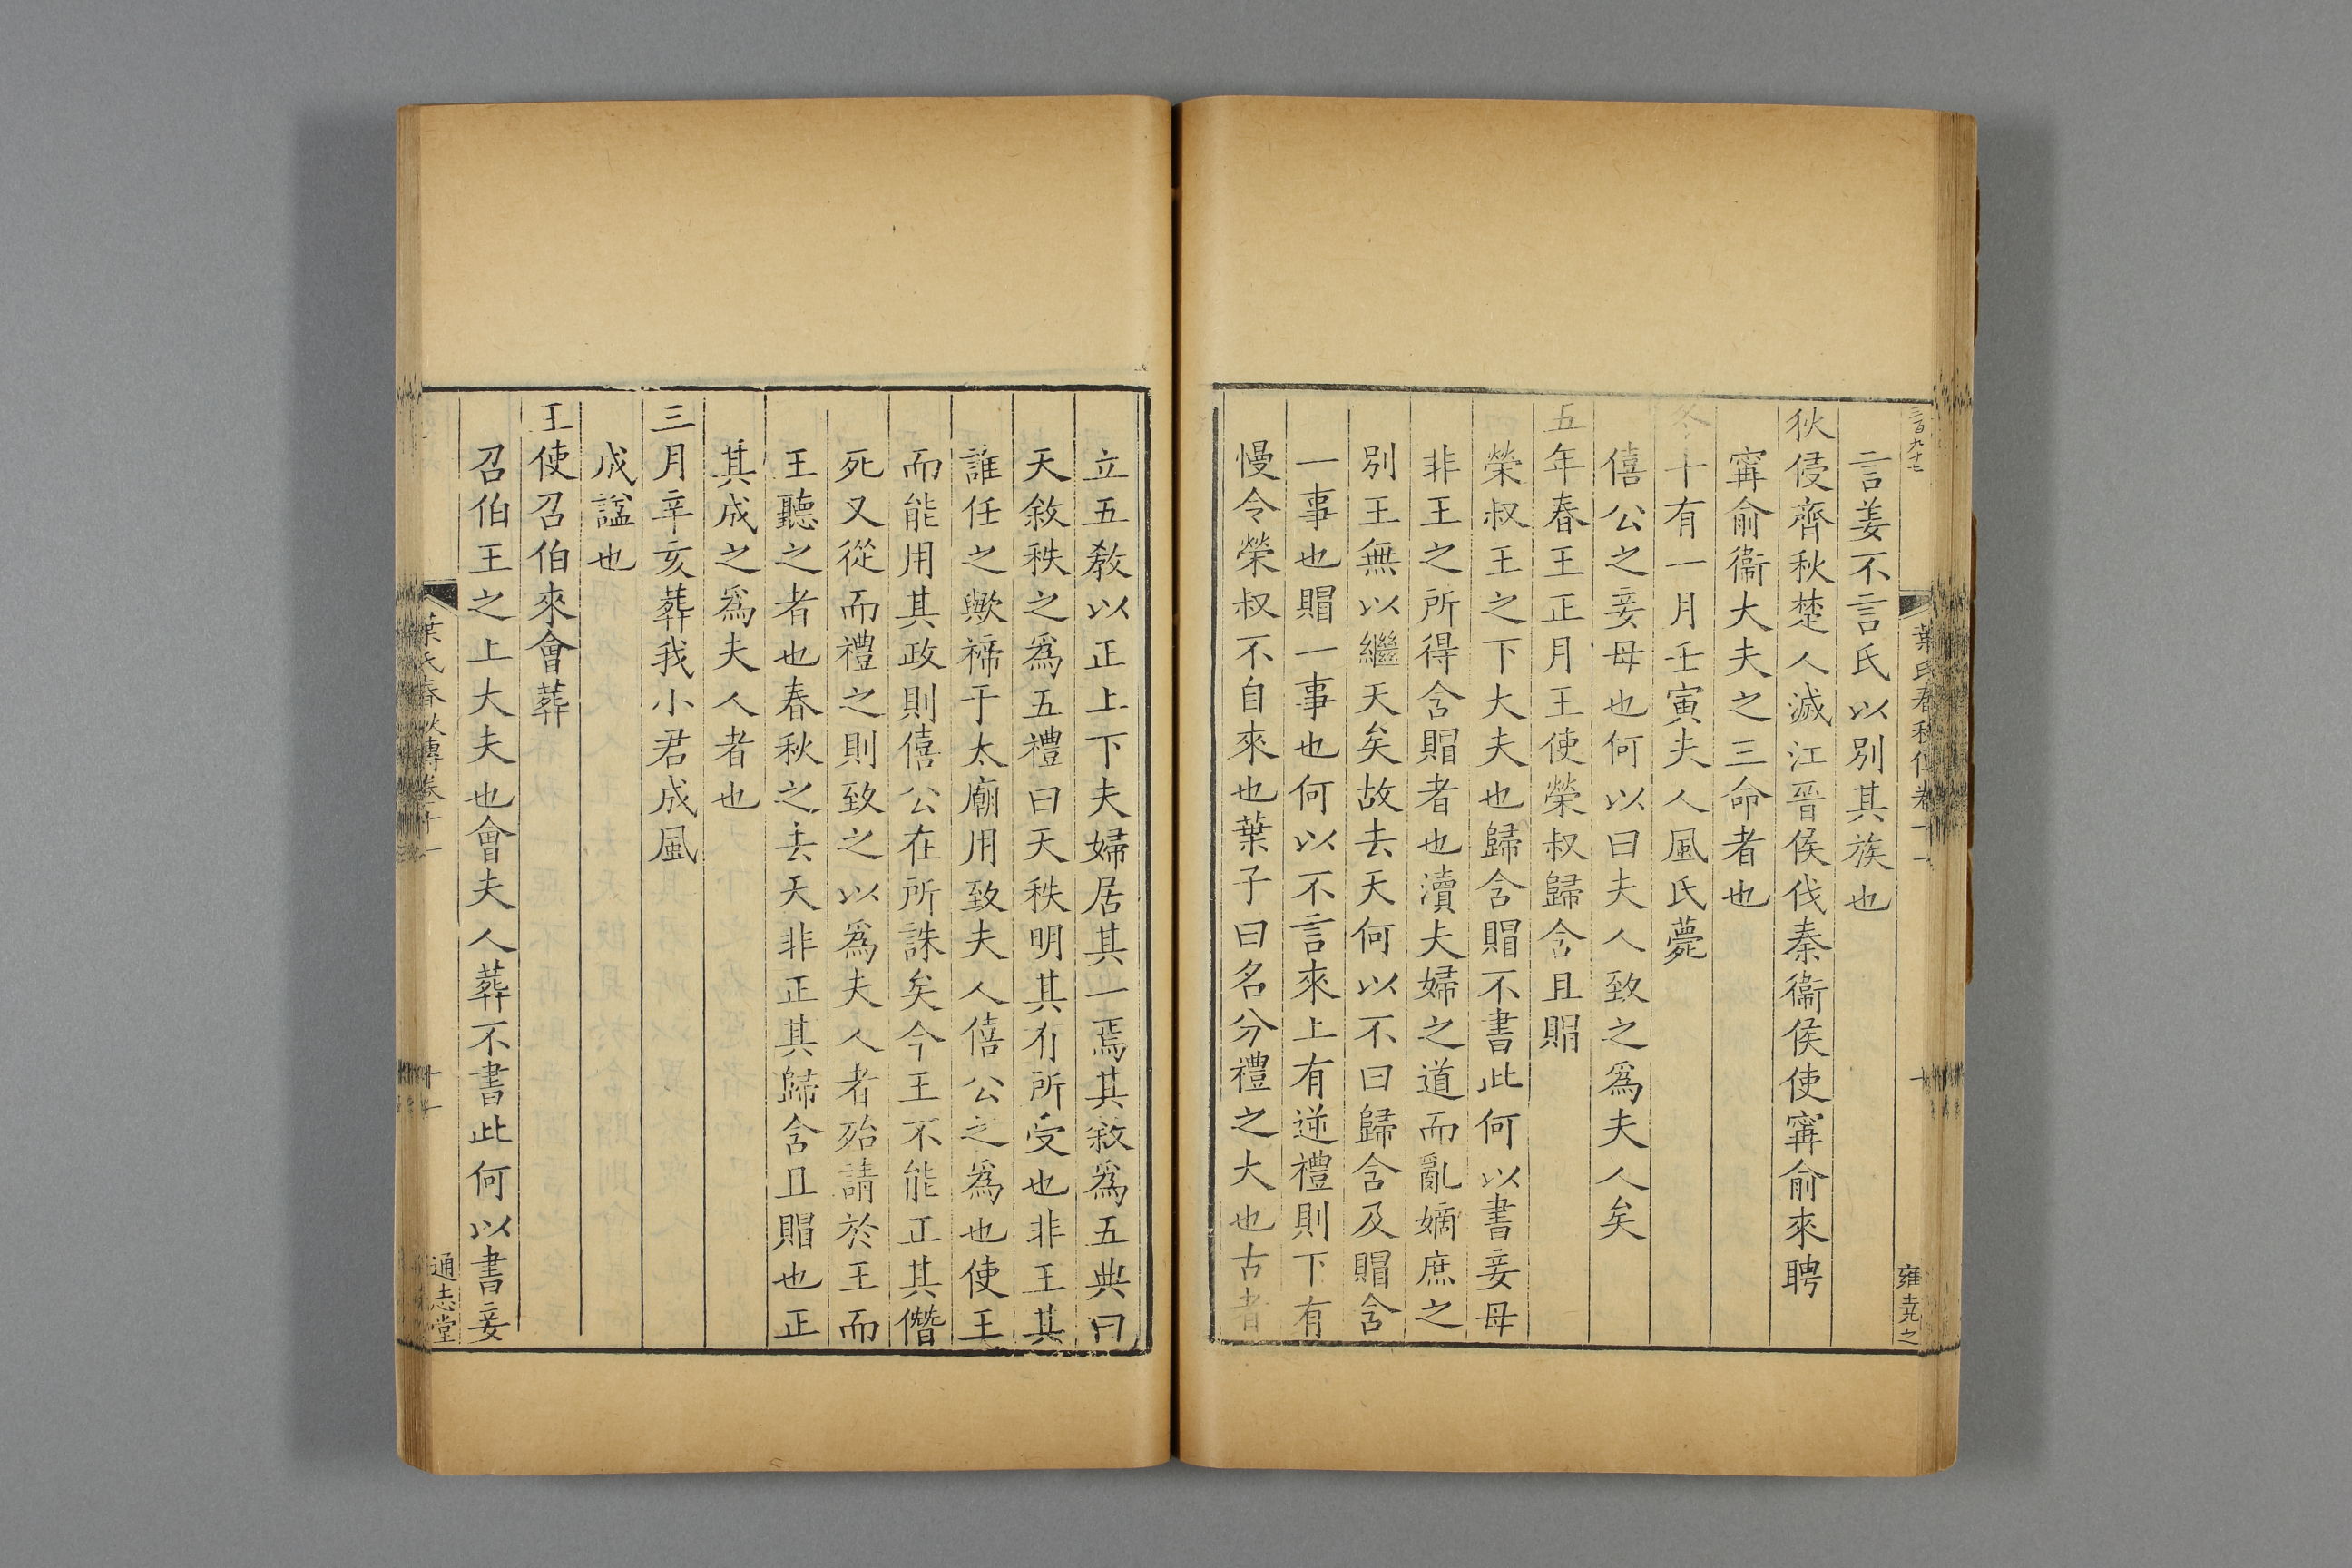 三百九十七
葉氏春秋傳卷十一
十
雍堯之
言姜不言氏以別其族也
狄侵齊秋楚人滅江晉侯伐秦衞侯使甯俞來聘
甯俞衞大夫之三命者也
冬十有一月壬寅夫人風氏薨
僖公之妾母也何以曰夫人致之爲夫人矣
五年春王正月王使榮叔歸含且賵
榮叔王之下大夫也歸含賵不書此何以書妾母
非王之所得含賵者也瀆夫婦之道而亂嫡庶之
別王無以繼天矣故去天何以不曰歸含及賵含
一事也賵一事也何以不言來上有逆禮則下有
慢令榮叔不自來也葉子曰名分禮之大也古者
立五敎以正上下夫婦居其一焉其敘爲五典曰
天敘秩之爲五禮曰天秩明其有所受也非王其
誰任之歟禘于太廟用致夫人僖公之爲也使王
而能用其政則僖公在所誅矣今王不能正其僭
死又從而禮之則致之以爲夫人者殆請於王而
王聽之者也春秋之去天非正其歸含且賵也正
其成之爲夫人者也
三月辛亥葬我小君成風
成諡也
王使召伯來會葬
召伯王之上大夫也會夫人葬不書此何以書妾
葉氏春秋傳卷十一
十一
通志堂